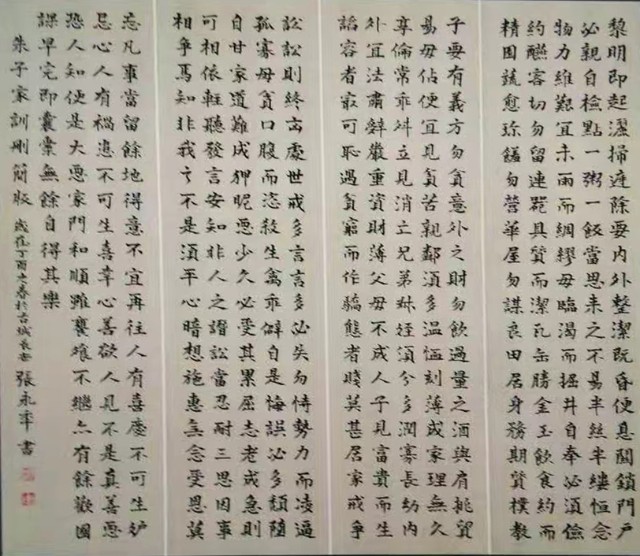 黎明即起灑掃庭除要內外整潔既昏便息關鎖門戶
必親自檢點一粥一飯當思來之不易半絲半縷恒念
物力維艱宜未雨而綢繆毋臨渴而掘井自奉必須儉
約醼客切勿留連器具質而潔瓦缶勝金玉飲食約而
精園蔬愈珍饈勿營華屋勿謀良田居身務期質樸教
子要有義方勿貪意外之財勿飲過量之酒與肩挑貿
易毋佔便宜見貧苦親鄰須多溫恤刻薄成家理無久
享倫常乖舛立見消亡兄弟叔姪須分多潤寡長幼內
外宜法肅辭嚴重資財薄父母不成人子見富貴而生
諂容者最可恥遇貧窮而作驕態者賤莫甚居家戒爭
訟訟則終凶處世戒多言言多必失勿恃勢力而凌逼
孤寡毋貪口腹而恣殺生禽乖僻自是悔誤必多頹隳
自甘家道難成狎昵惡少久必受其累屈志老成急則
可相依輕聽發言安知非人之譖訟當忍耐三思因事
相爭焉知非我之不是須平心暗想施惠無念受恩莫
忘凡事當留餘地得意不宜再往人有喜慶不可生妒
忌心人有禍患不可生喜幸心善欲人見不是真善惡
恐人知便是大惡家門和順雖饔飧不繼亦有餘歡國
課早完即囊橐無餘自得其樂
朱子家訓刪簡版 歲在丁酉之春於古城長安 張永 書